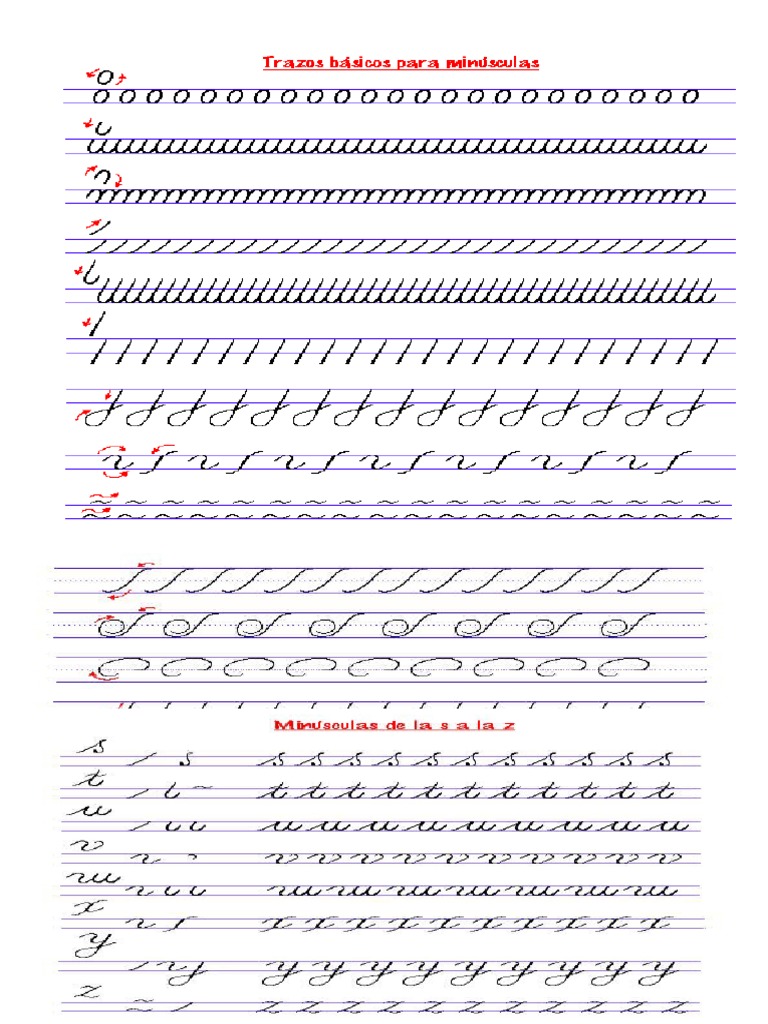 Trazos básicos para minúsculas
o
o o o o o o o o o o o o o o o o o o o o o o o
Minúsculas de la s a la z
s
s s s s s s s s s s s
t
t t t t t t t t t t t
u
u u u u u u u u u u
v
v v v v v v v v v v
w
w w w w w w w
x
x x x x x x x x x x
y
y y y y y y y y y
z
z z z z z z z z z z z